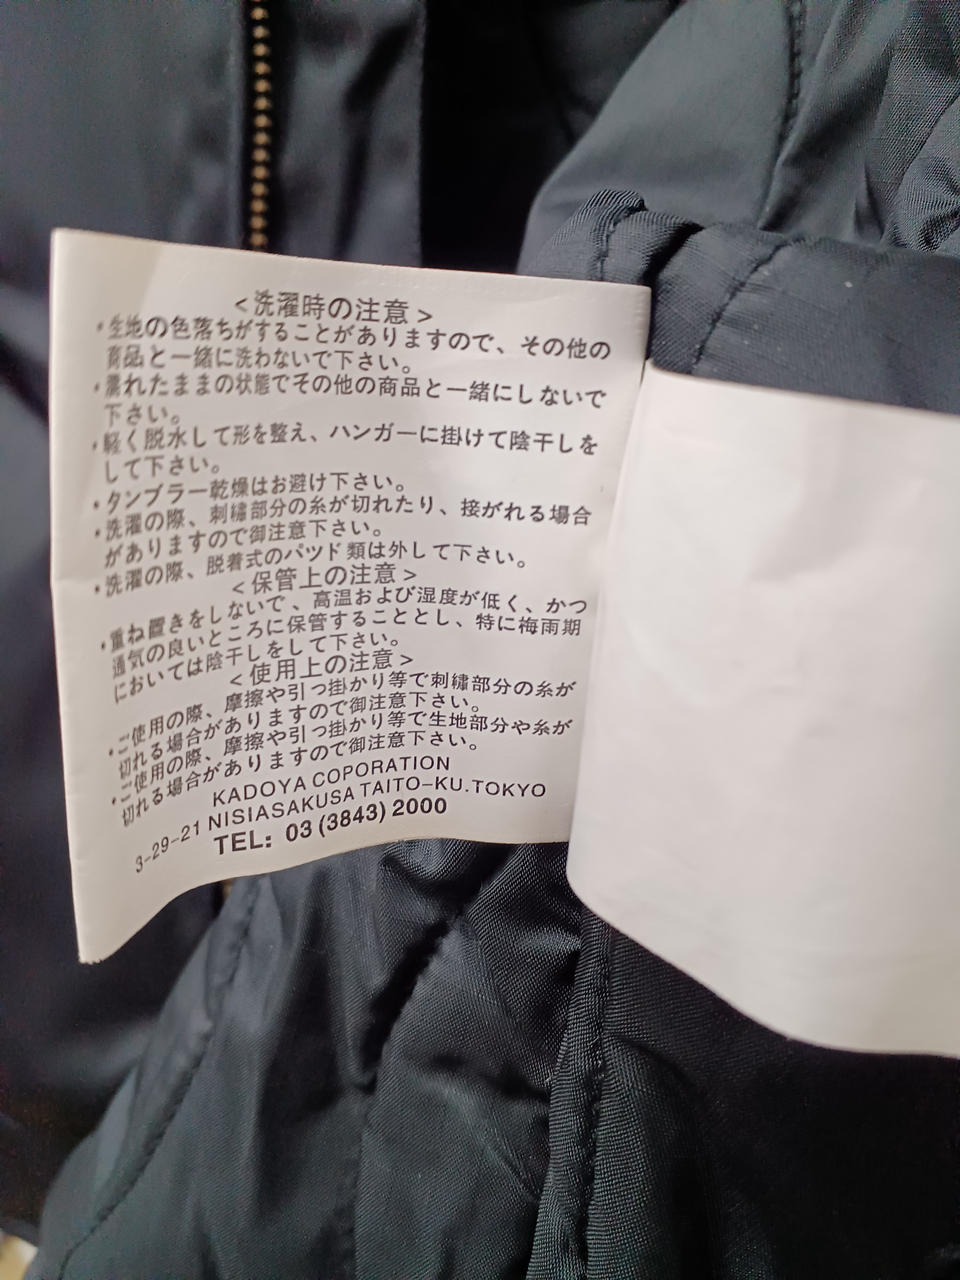 <洗濯時の注意>
・生地の色落ちがすることがありますので、その他の
商品と一緒に洗わないで下さい。
・濡れたままの状態でその他の商品と一緒にしないで
下さい。
・軽く脱水して形を整え、ハンガーに掛けて陰干しを
して下さい。
・タンブラー乾燥はお避け下さい。
・洗濯の際、刺繍部分の糸が切れたり、接がれる場合
がありますので御注意下さい。
・洗濯の際、脱着式のパツド類は外して下さい。
<保管上の注意>
・重ね置きをしないで、高温および湿度が低く、かつ
通気の良いところに保管することとし、特に梅雨期
においては陰干しをして下さい。
<使用上の注意>
・ご使用の際、摩擦や引っ掛かり等で刺繍部分の糸が
切れる場合がありますので御注意下さい。
・ご使用の際、摩擦や引っ掛かり等で生地部分や糸が
切れる場合がありますので御注意下さい。
KADOYA COPORATION
3-29-21 NISIASAKUSA TAITO-KU.TOKYO
TEL: 03 (3843) 2000